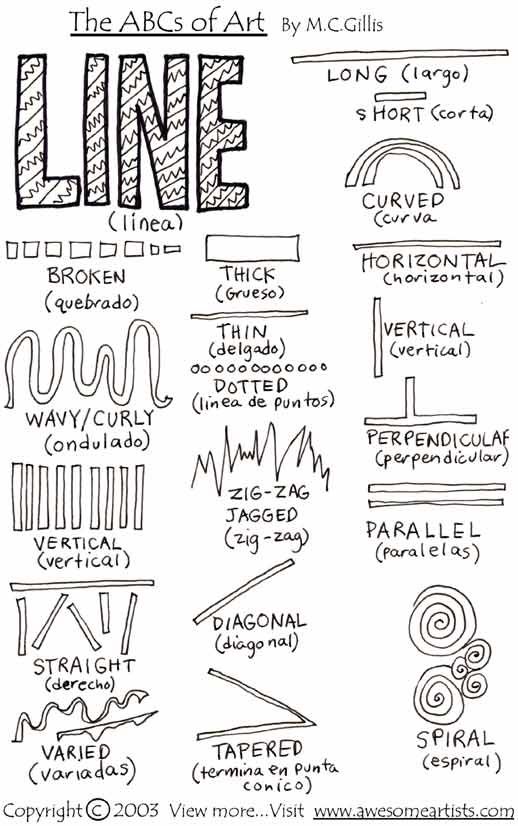 The ABCs of Art By M.C.Gillis
LINE
(linea)
LONG (largo)
SHORT (corta)
CURVED
(curva
BROKEN
(quebrado)
THICK
(Grueso)
HORIZONTAL
(horizontal)
THIN
(delgado)
VERTICAL
(vertical)
DOTTED
(linea de puntos)
WAVY/CURLY
(ondulado)
PERPENDICULAR
(perpendicular)
ZIG-ZAG
JAGGED
(zig-zag)
VERTICAL
(vertical)
PARALLEL
(paralelas)
DIAGONAL
(diagonal)
STRAIGHT
(derecho)
VARIED
(variadas)
TAPERED
(termina en punta
conico)
SPIRAL
(espiral)
Copyright © 2003 View more...Visit www.awesomeartists.com